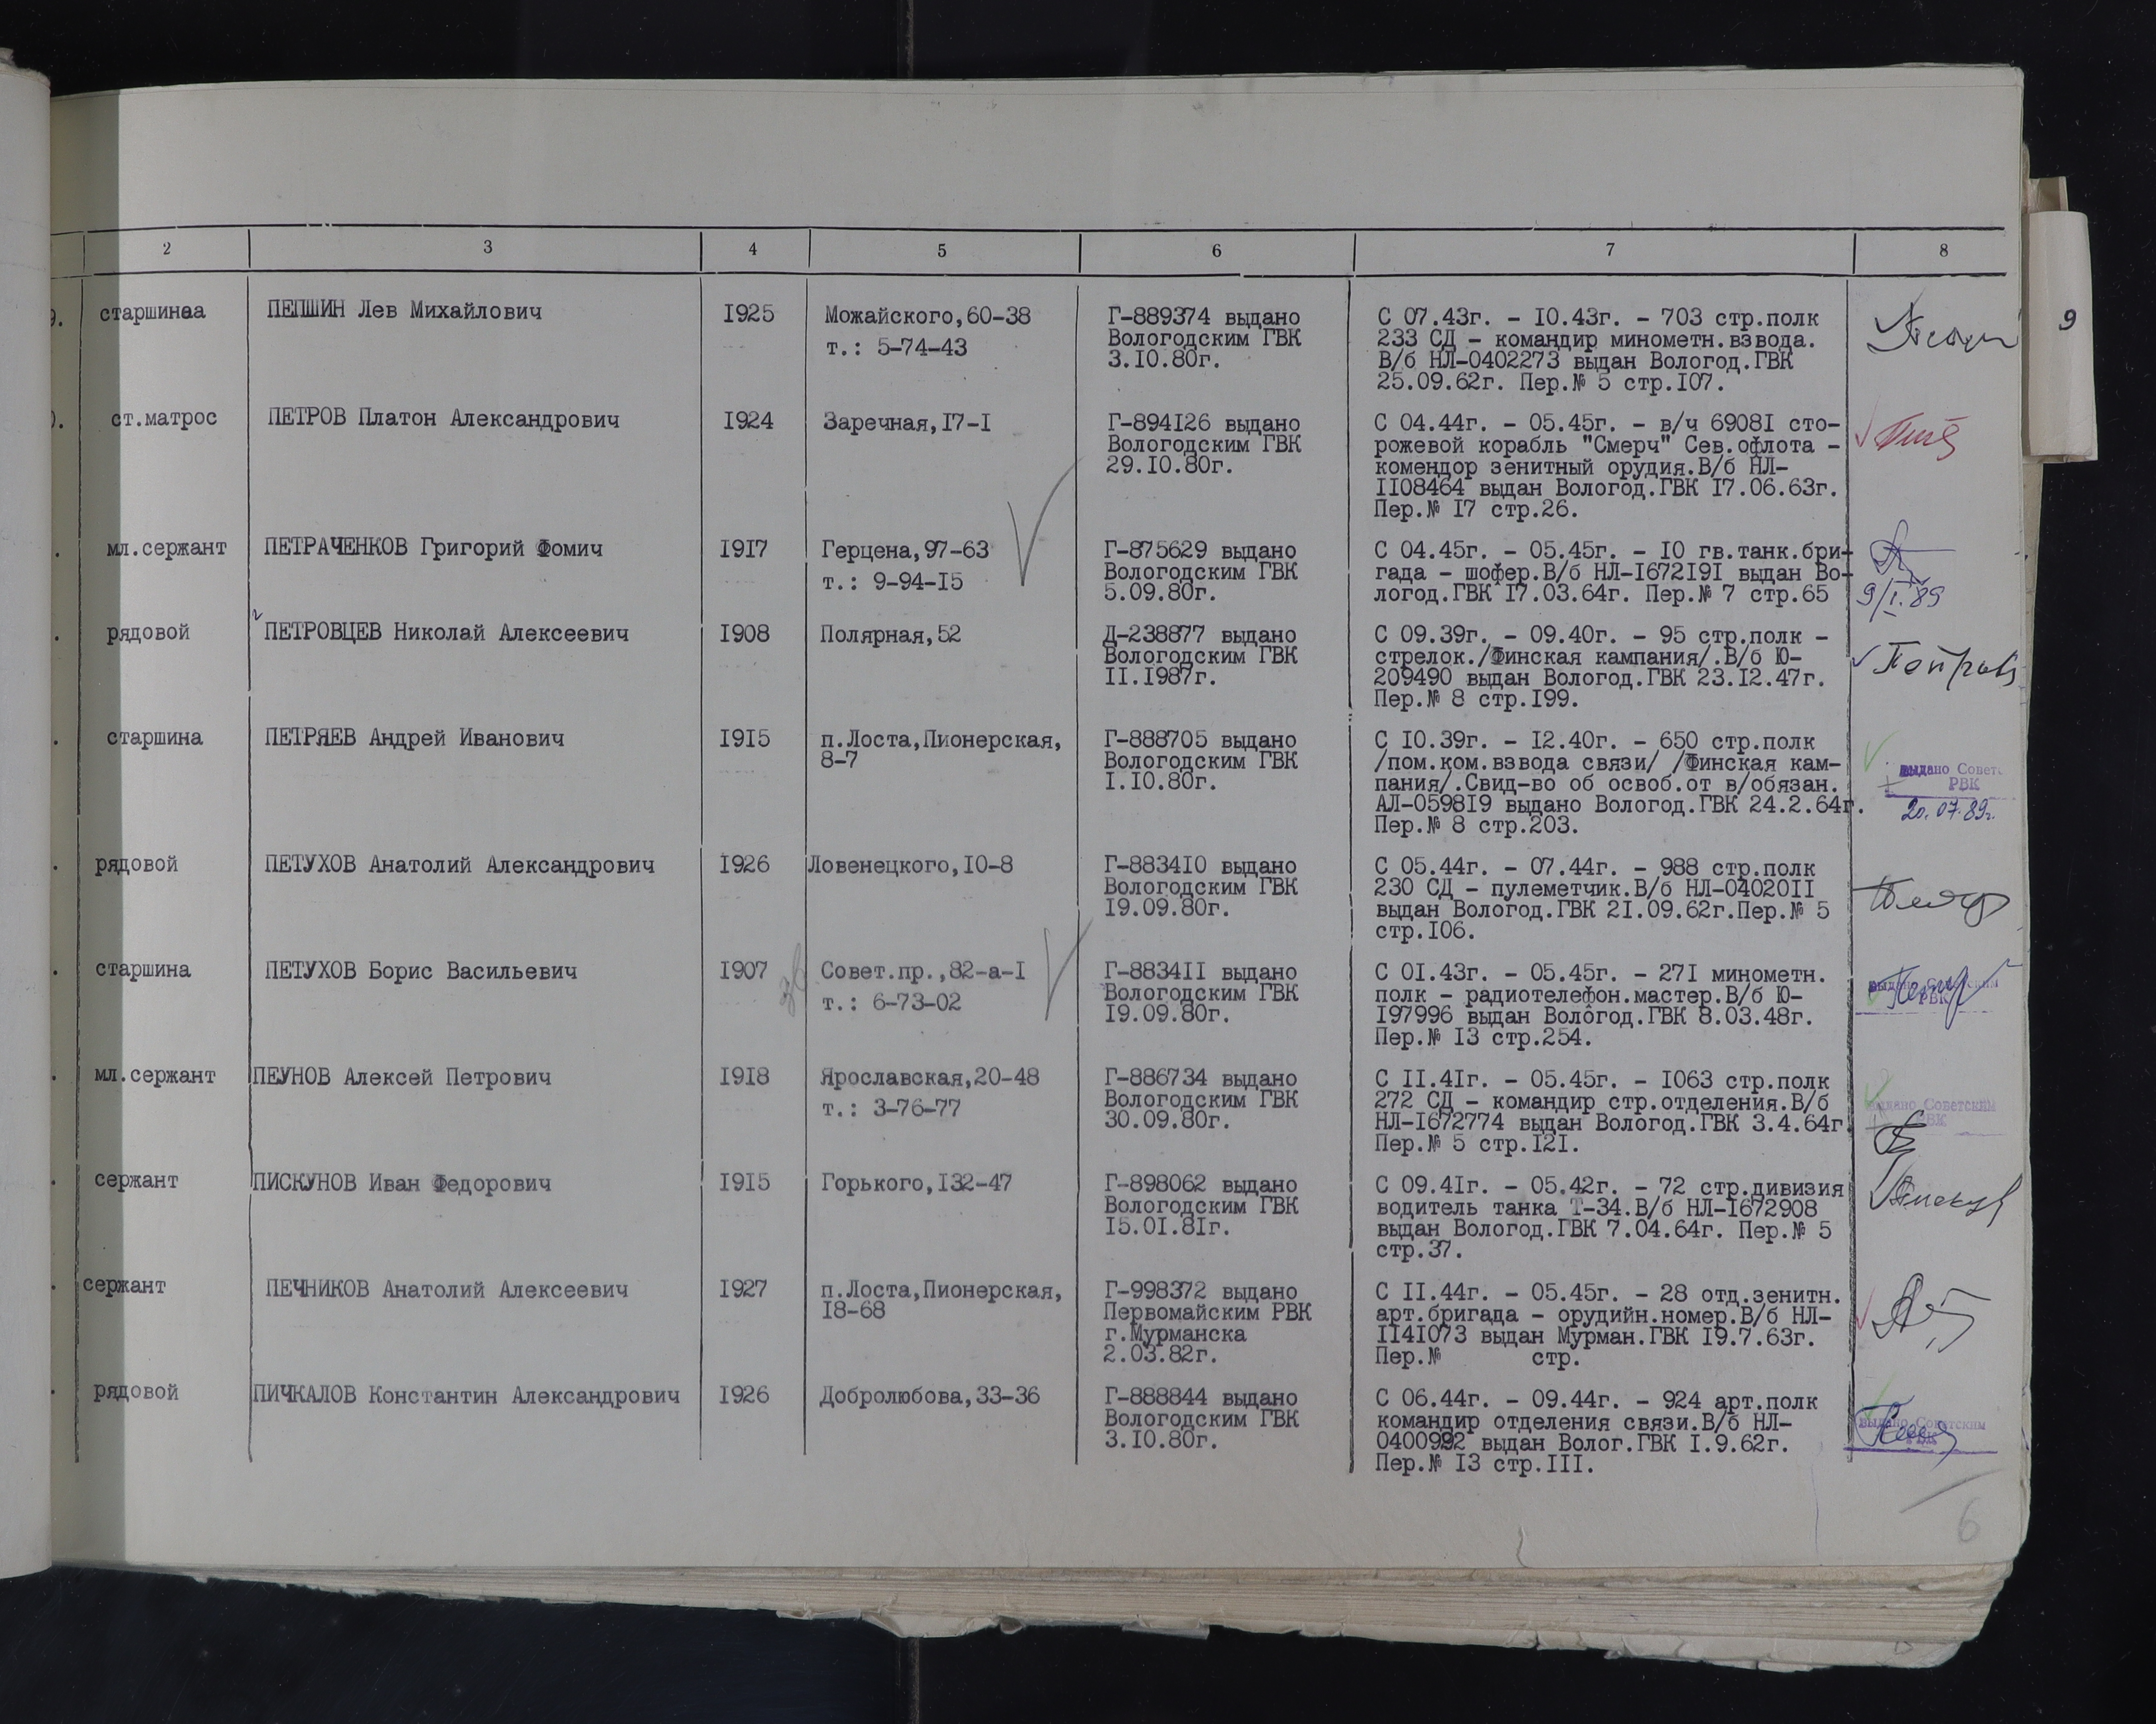 2 3 4 5 6 7 8
9
старшинаа ПЕПШИН Лев Михайлович 1925 Можайского,60-38 Г-889374 выдано С 07.43г. - 10.43г. - 703 стр.полк
т.: 5-74-43 Вологодским ГВК 233 СД - командир минометн.взвода.
3.10.80г. В/б НЛ-0402273 выдан Вологод.ГВК
25.09.62г. Пер.№ 5 стр.107.
ст.матрос ПЕТРОВ Платон Александрович 1924 Заречная,17-1 Г-894126 выдано С 04.44г. - 05.45г. - в/ч 69081 сто-
Вологодским ГВК рожевой корабль "Смерч" Сев.офлота -
29.10.80г. комендор зенитный орудия.В/б НЛ-
1108464 выдан Вологод.ГВК 17.06.63г.
Пер.№ 17 стр.26.
мл.сержант ПЕТРАЧЕНКОВ Григорий Фомич 1917 Герцена,97-63 Г-875629 выдано С 04.45г. - 05.45г. - 10 гв.танк.бри-
т.: 9-94-15 Вологодским ГВК гада - шофер.В/б НЛ-1672191 выдан Во-
5.09.80г. логод.ГВК 17.03.64г. Пер.№ 7 стр.65 9/I.89
рядовой ПЕТРОВЦЕВ Николай Алексеевич 1908 Полярная,52 Д-238877 выдано С 09.39г. - 09.40г. - 95 стр.полк -
Вологодским ГВК стрелок./Финская кампания/.В/б Ю-
11.1987г. 209490 выдан Вологод.ГВК 23.12.47г.
Пер.№ 8 стр.199.
старшина ПЕТРЯЕВ Андрей Иванович 1915 п.Лоста,Пионерская, Г-888705 выдано С 10.39г. - 12.40г. - 650 стр.полк
8-7 Вологодским ГВК /пом.ком.взвода связи/ /Финская кам- выдано Советс
1.10.80г. пания/.Свид-во об освоб.от в/обязан. РВК
АЛ-059819 выдано Вологод.ГВК 24.2.64г. 20.07.89г.
Пер.№ 8 стр.203.
рядовой ПЕТУХОВ Анатолий Александрович 1926 Ловенецкого,10-8 Г-883410 выдано С 05.44г. - 07.44г. - 988 стр.полк
Вологодским ГВК 230 СД - пулеметчик.В/б НЛ-0402011
19.09.80г. выдан Вологод.ГВК 21.09.62г.Пер.№ 5
стр.106.
старшина ПЕТУХОВ Борис Васильевич 1907 Совет.пр.,82-а-1 Г-883411 выдано С 01.43г. - 05.45г. - 271 минометн.
т.: 6-73-02 Вологодским ГВК полк - радиотелефон.мастер.В/б Ю- выдано Советским
19.09.80г. 197996 выдан Вологод.ГВК 8.03.48г. РВК
Пер.№ 13 стр.254.
мл.сержант ПЕУНОВ Алексей Петрович 1918 Ярославская,20-48 Г-886734 выдано С 11.41г. - 05.45г. - 1063 стр.полк
т.: 3-76-77 Вологодским ГВК 272 СД - командир стр.отделения.В/б выдано Советским
30.09.80г. НЛ-1672774 выдан Вологод.ГВК 3.4.64г РВК
Пер.№ 5 стр.121.
сержант ПИСКУНОВ Иван Федорович 1915 Горького,132-47 Г-898062 выдано С 09.41г. - 05.42г. - 72 стр.дивизия
Вологодским ГВК водитель танка Т-34.В/б НЛ-1672908
15.01.81г. выдан Вологод.ГВК 7.04.64г. Пер.№ 5
стр.37.
сержант ПЕЧНИКОВ Анатолий Алексеевич 1927 п.Лоста,Пионерская, Г-998372 выдано С 11.44г. - 05.45г. - 28 отд.зенитн.
18-68 Первомайским РВК арт.бригада - орудийн.номер.В/б НЛ-
г.Мурманска 1141073 выдан Мурман.ГВК 19.7.63г.
2.03.82г. Пер.№ стр.
рядовой ПИЧКАЛОВ Константин Александрович 1926 Добролюбова,33-36 Г-888844 выдано С 06.44г. - 09.44г. - 924 арт.полк
Вологодским ГВК командир отделения связи.В/б НЛ- выдано Советским
3.10.80г. 0400992 выдан Волог.ГВК 1.9.62г. РВК
Пер.№ 13 стр.111.
6